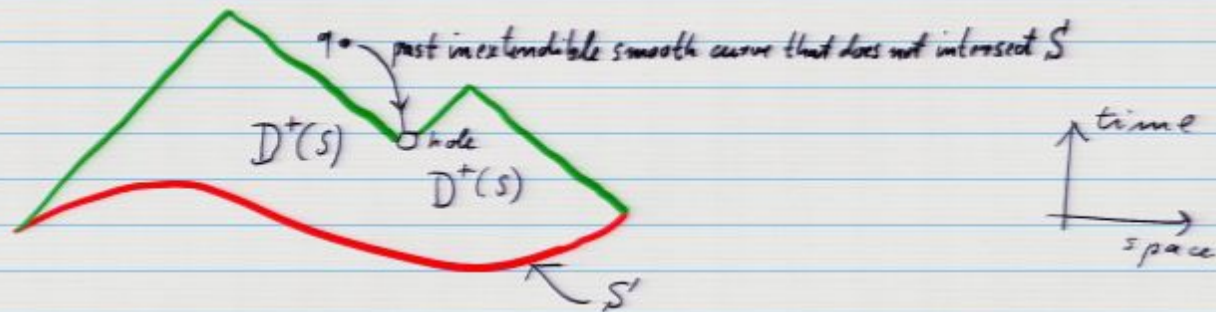 q• past inextendible smooth curve that does not intersect S
time
D⁺(S)
hole
D⁺(S)
space
S